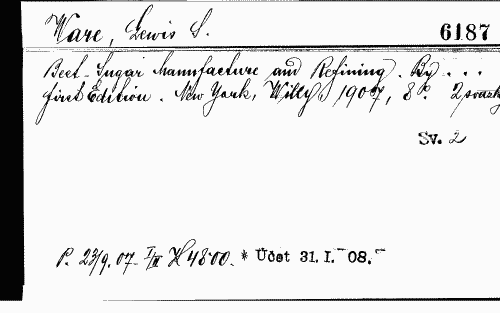 Ware, Lewis S. 6187
Beet-Sugar Manufacture and Refining. By . . .
First Edition. New York, Willy, 1907, 8°. 2 svazk
Sv. 2
P. 23/9. 07. I/II K 48·00.- * Účet 31. I. 08.